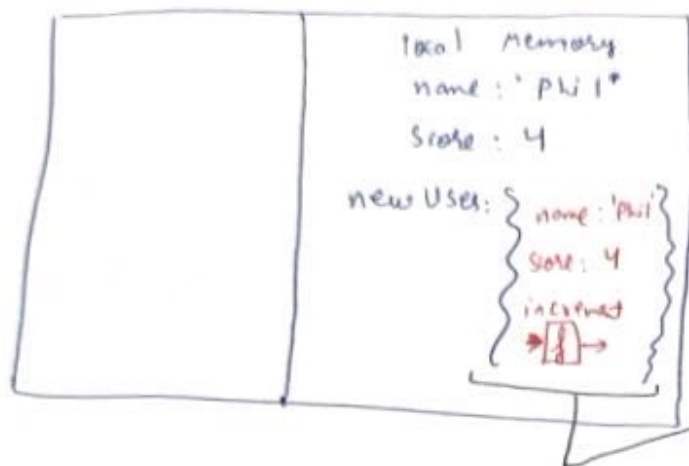 local Memory
name : 'Phil'
Score : 4
newUser: {
name : 'Phil'
Score : 4
increment
f
}